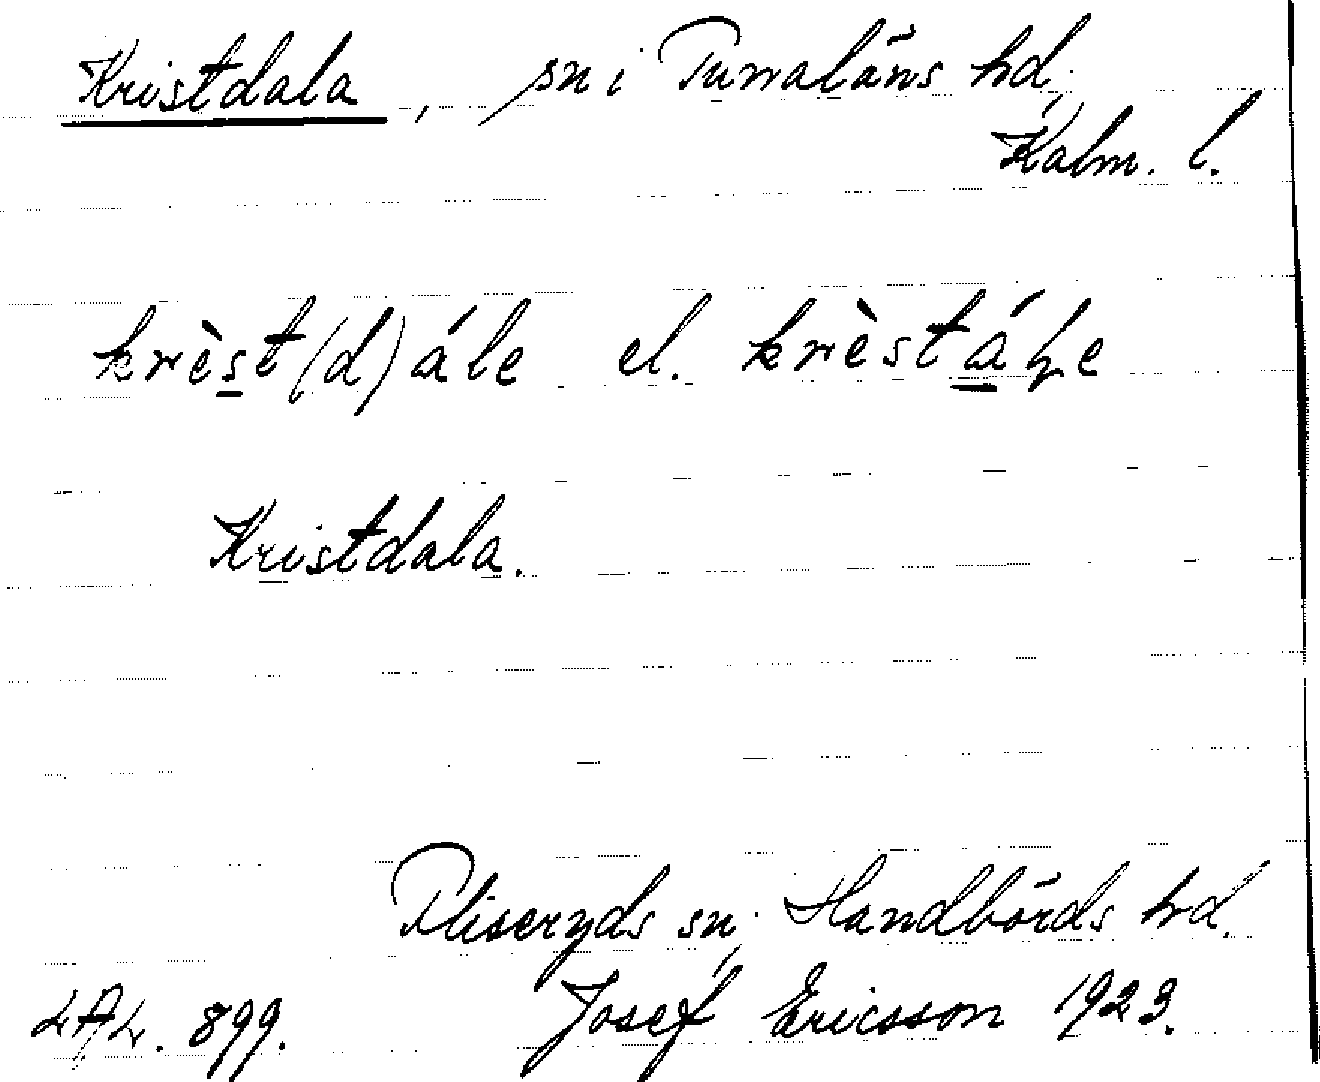 Kristdala, sn i Tunaläns hd,
Kalm. l.
krèst(d)ále el. krèstáɭe
Kristdala.
Fliseryds sn, Handbörds hd.
LAL. 899. Josef Ericsson 1923.